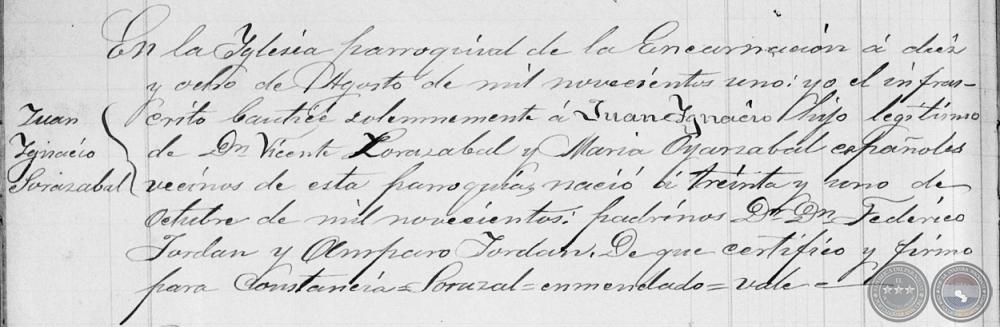 En la Iglesia parroquial de la Encarnación á diéz
y ocho de Agosto de mil novecientos uno: yo el infras-
crito bauticé solemnemente á Juan Ignácio hijo legítimo
de Dn Vicente Sorazabal y Maria Oyarzabal españoles
vecinos de esta parroquia, nació á treinta y uno de
Octubre de mil novecientos: padrinos Dr Dn Federico
Jordan y Amparo Jordan. De que certifico y firmo
para Constancia = Sorazal = enmendado = vale =
Juan
Ignacio
Sorazabal